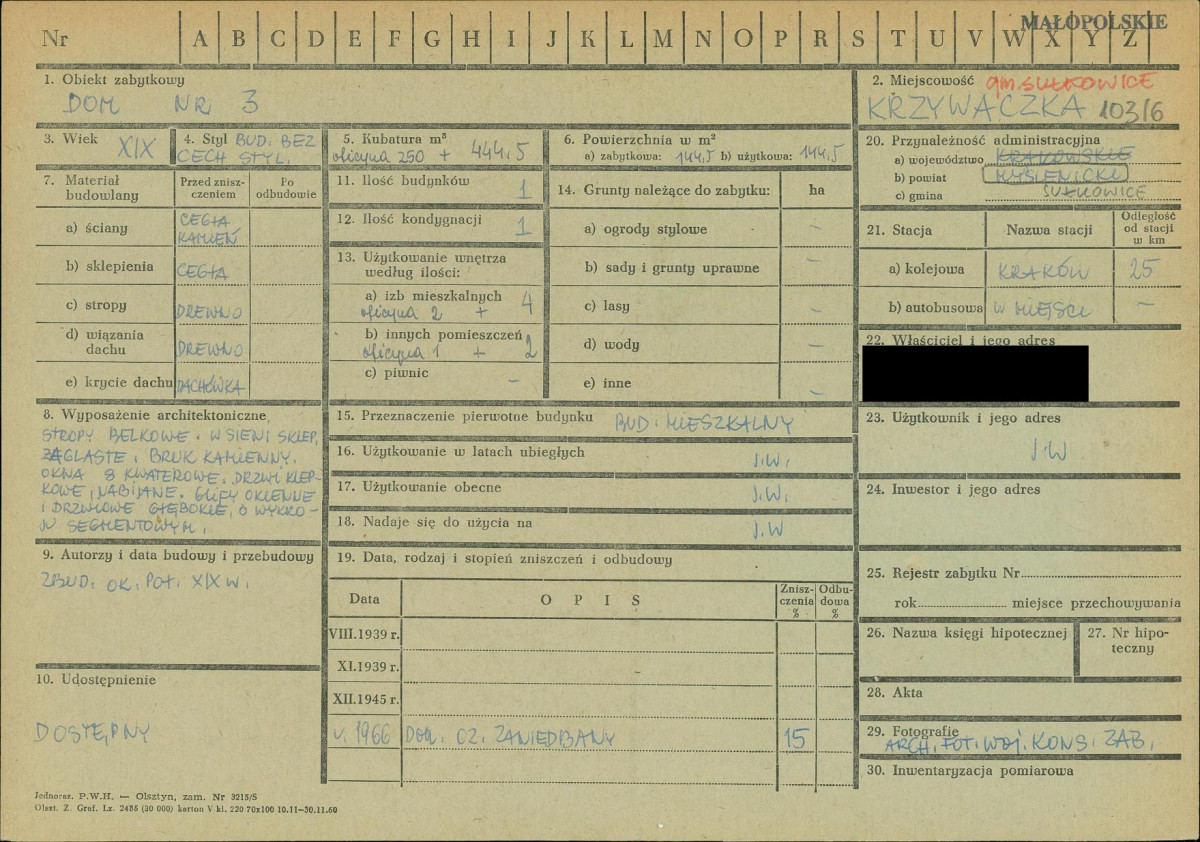 MAŁOPOLSKIE
Nr A B C D E F G H I J K L M N O P R S T U V W X Y Z
1. Obiekt zabytkowy
DOM NR 3
2. Miejscowość gm. SUŁKOWICE
KRZYWACZKA 103/6
3. Wiek XIX
4. Styl BUD. BEZ
CECH STYL.
5. Kubatura m³
oficyna 250 + 444,5
6. Powierzchnia w m²
a) zabytkowa: 144,5 b) użytkowa: 144,5
7. Materiał
budowlany
Przed znisz-
czeniem
Po
odbudowie
a) ściany CEGŁA
KAMIEŃ
b) sklepienia CEGŁA
c) stropy DREWNO
d) wiązania
dachu DREWNO
e) krycie dachu DACHÓWKA
8. Wyposażenie architektoniczne
STROPY BELKOWE. W SIENI SKLEP.
ŻAGLASTE. BRUK KAMIENNY.
OKNA 8 KWATEROWE. DRZWI KLEP-
KOWE, NABIJANE. GLIFY OKIENNE
I DRZWIOWE GŁĘBOKIE, O WYKRO-
JU SEGMENTOWYM.
9. Autorzy i data budowy i przebudowy
ZBUD. OK. POŁ. XIX W.
10. Udostępnienie
DOSTĘPNY
11. Ilość budynków 1
12. Ilość kondygnacji 1
13. Użytkowanie wnętrza
według ilości:
a) izb mieszkalnych 4
oficyna 2 +
b) innych pomieszczeń 2
oficyna 1 +
c) piwnic –
14. Grunty należące do zabytku: ha
a) ogrody stylowe –
b) sady i grunty uprawne –
c) lasy –
d) wody –
e) inne –
15. Przeznaczenie pierwotne budynku BUD. MIESZKALNY
16. Użytkowanie w latach ubiegłych J.W.
17. Użytkowanie obecne J.W.
18. Nadaje się do użycia na J.W
19. Data, rodzaj i stopień zniszczeń i odbudowy
Data OPIS Znisz-
czenia
% Odbu-
dowa
%
VIII.1939 r.
XI.1939 r.
XII.1945 r.
V. 1966 DOM. CZ. ZANIEDBANY 15
20. Przynależność administracyjna
a) województwo KRAKOWSKIE
b) powiat MYŚLENICKI
c) gmina SUŁKOWICE
21. Stacja Nazwa stacji Odległość
od stacji
w km
a) kolejowa KRAKÓW 25
b) autobusowa W MIEJSCU –
22. Właściciel i jego adres
23. Użytkownik i jego adres
J.W
24. Inwestor i jego adres
25. Rejestr zabytku Nr
rok miejsce przechowywania
26. Nazwa księgi hipotecznej
27. Nr hipo-
teczny
28. Akta
29. Fotografie
ARCH. FOT. WOJ. KONS. ZAB.
30. Inwentaryzacja pomiarowa
Jednoraz. P.W.H. — Olsztyn, zam. Nr 3215/S
Olszt. Z. Graf. Lx. 2486 (30 000) karton V kl. 220 70x100 10.11—30.11.60